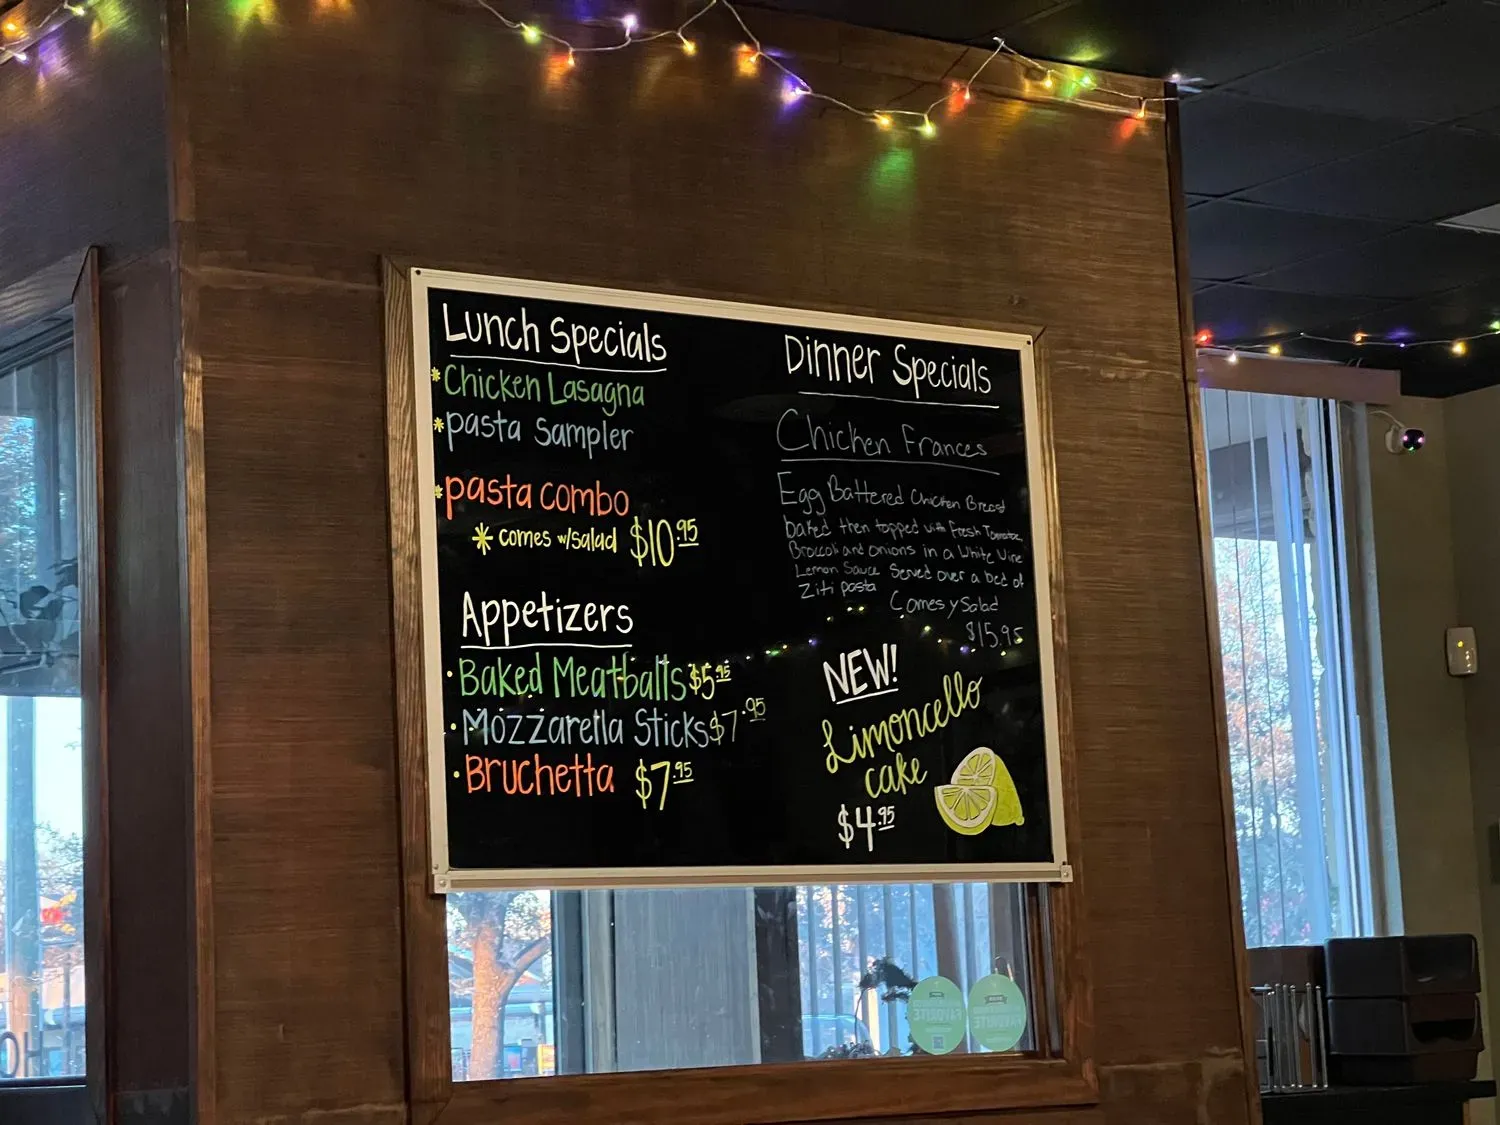 Lunch Specials
*Chicken Lasagna
*pasta sampler
*pasta combo
* comes w/salad $10.95
Appetizers
• Baked Meatballs $5.95
• Mozzarella Sticks $7.95
• Bruchetta $7.95
Dinner Specials
Chicken Frances
Egg Battered Chicken Breast
baked then topped with Fresh Tomatoe,
Broccoli and onions in a White Wine
Lemon Sauce Served over a bed of
Ziti pasta
Comes y Salad
$15.95
NEW!
Limoncello
cake
$4.95
FAVORITE
FAVORITE
HO